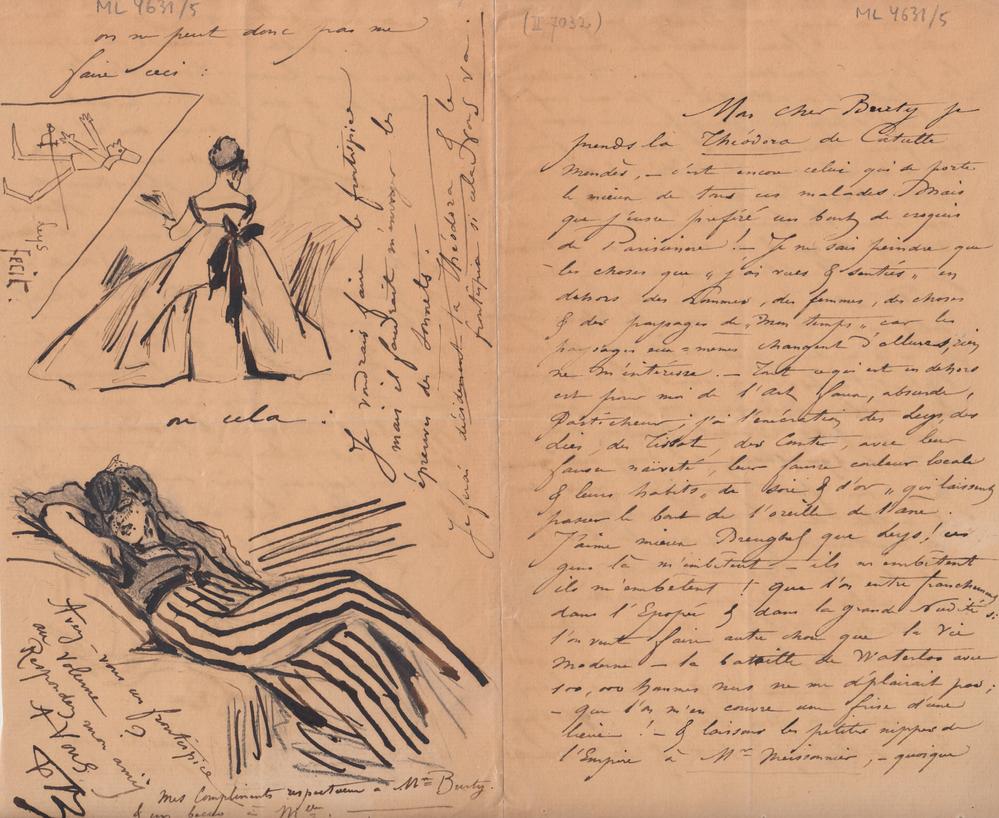 ML 4631/5
on ne peut donc pas me
faire ceci :
Leys
fecit.
ou cela :
Je voudrais faire le frontispice
mais il faudrait m'envoyer les
épreuves des sonnets.
Je ferai décidément la Théodora pour le
frontispice si cela vous va.
Avez-vous un frontispice
au volume mon ami
? Répondez Vous
A Vous
Mes Compliments respectueux à Mme Burty.
& un baiser à Melle
(II 7032)
ML 4631/5
Mon cher Burty je
prends la Théodora de Catulle
Mendès, – c'est encore celui qui se porte
le mieux de tous ces malades. Mais
que j'eusse préféré un bout de croquis
de Parisienne ! – Je ne sais peindre que
les choses que „ j'ai vues & senties „ en
dehors des hommes, des femmes, des choses
& des paysages de „ mon temps „ car les
paysages eux-mêmes changent d'allures, rien
ne m'intéresse. – Tout ce qui est en dehors
est pour moi de l'Art faux, absurde,
Pasticheur ; j'ai l'énécration des Leys, des
Lies, des Tissot, des Comte, avec leur
fausse naïveté, leur fausse couleur locale
& leurs habits „ de soie & d'or „ qui laissent
passer le bout de l'oreille de l'âne.
J'aime mieux Breughel que Leys ! ces
gens là m'embêtent – ils m'embêtent
ils m'embêtent ! que l'on entre franchement
dans l'Epopée & dans la grande Nudité si
l'on veut faire autre chose que la Vie
Moderne – la bataille de Waterloo avec
100,000 hommes nus ne me déplairait pas ;
– que l'on m'en couvre une frise d'une
lieue ! – & laissons les petites nippes de
l'Empire à Mr Meissonnier, – quoique